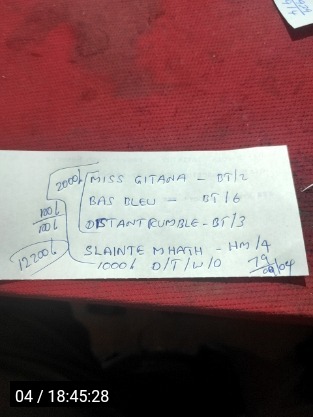 2000/ MISS GITANA - BT/2
BAS BLEU - BT/6
100/
100/ DISTANT RUMBLE - BT/3
SLAINTE MHATH - HM/4
12200/ 1000/ D/T/W/O
04 / 18:45:28